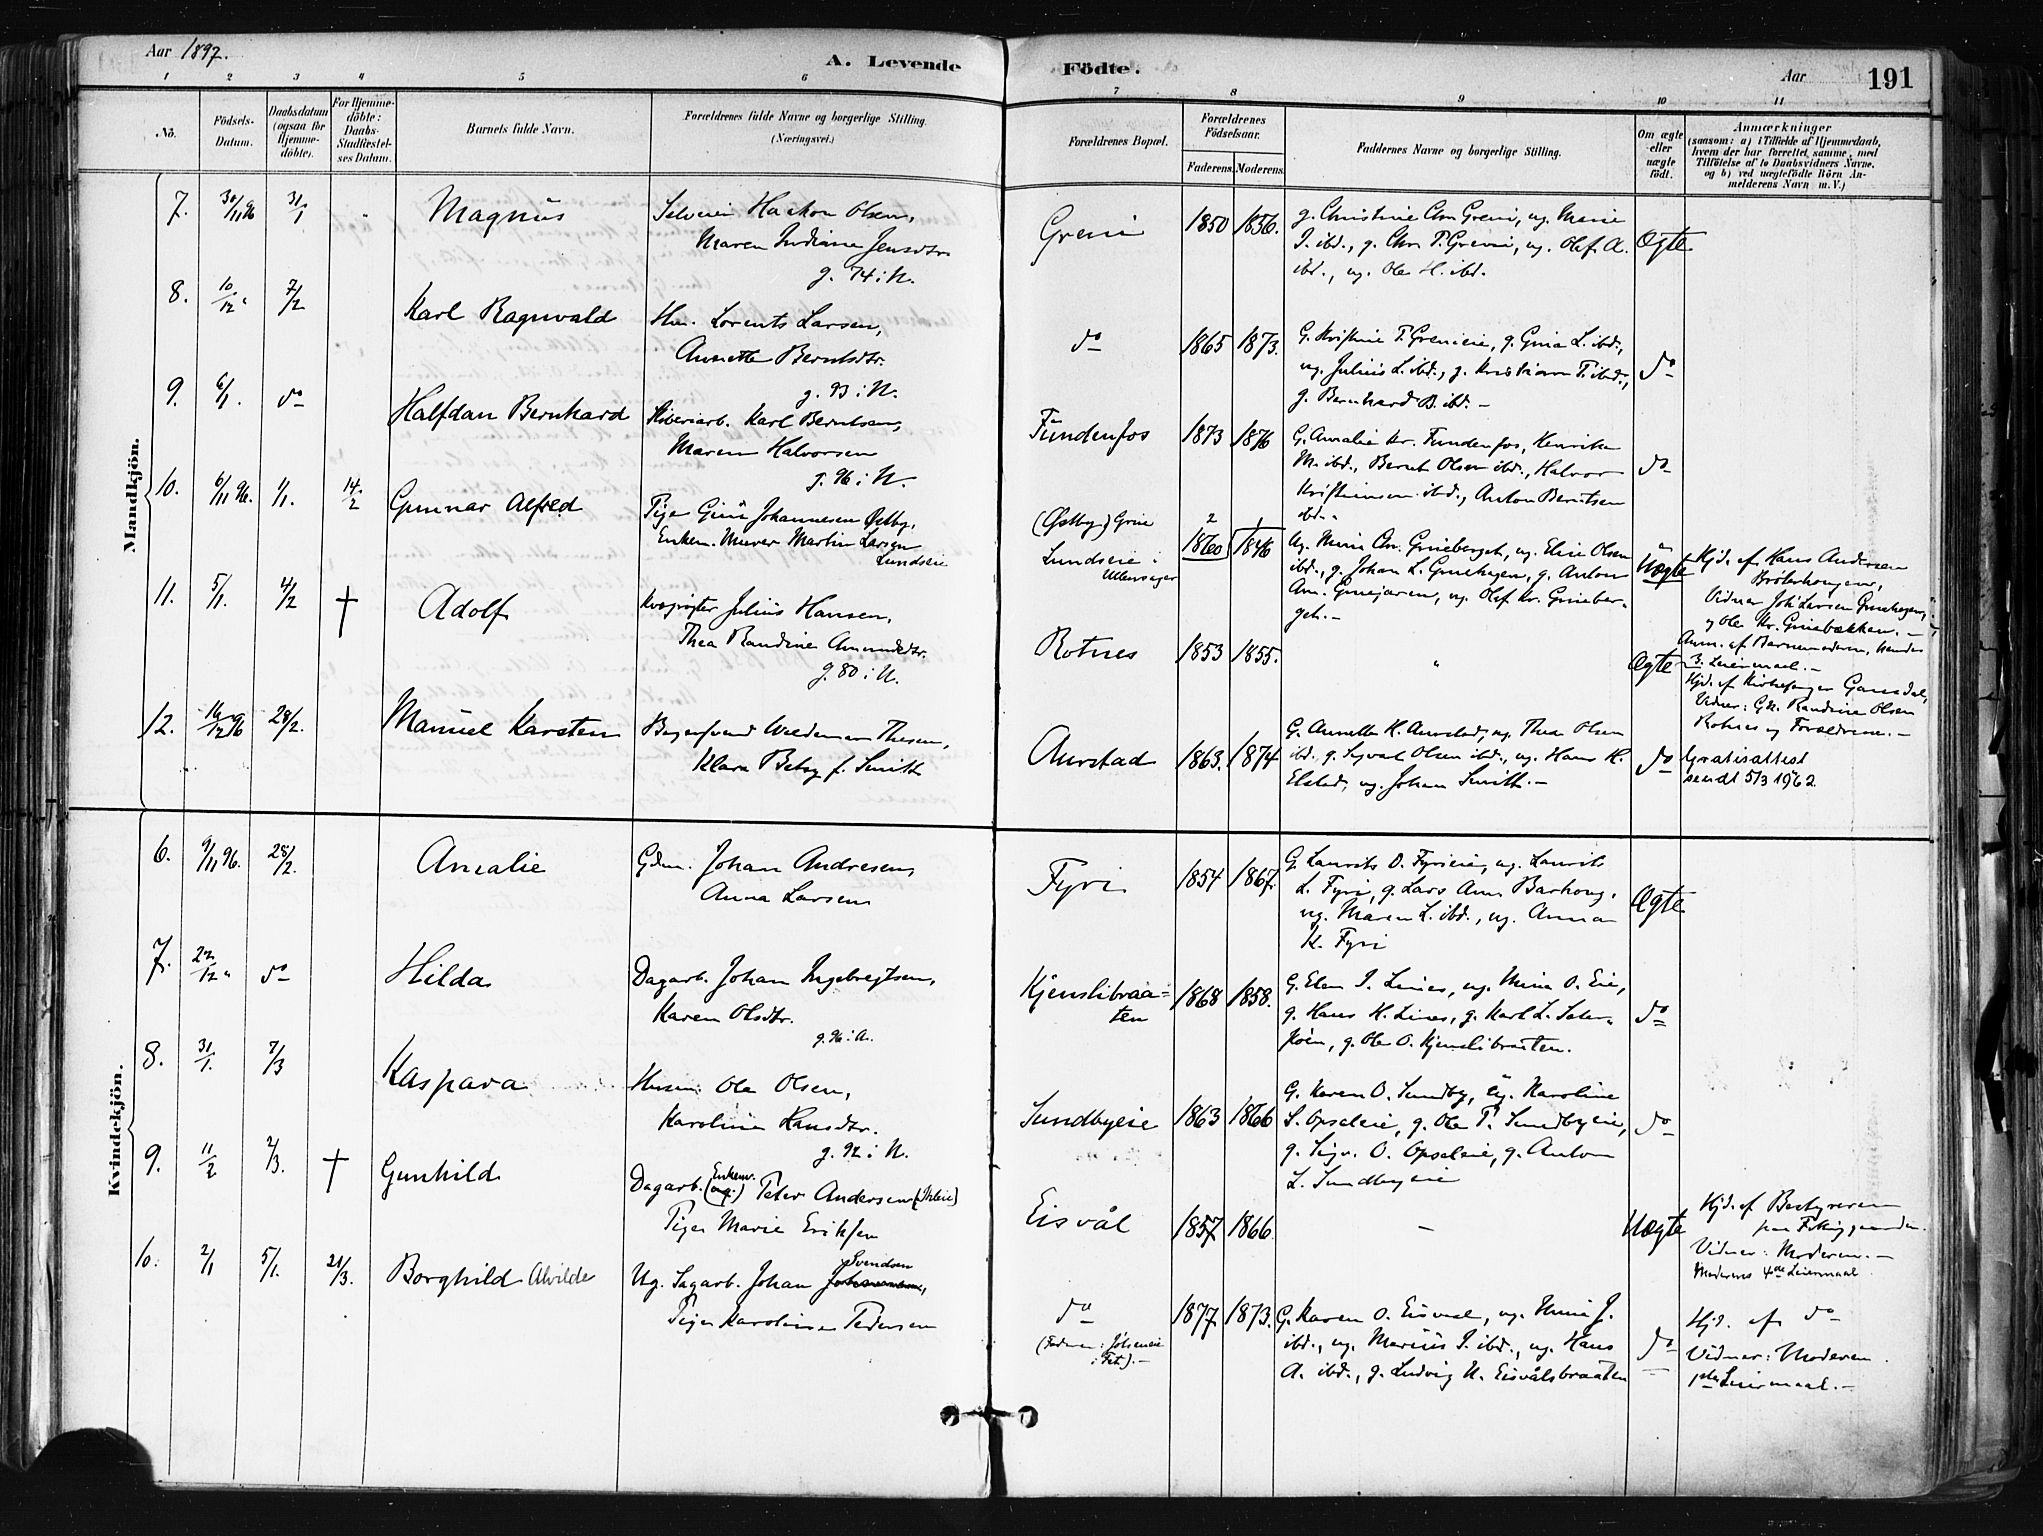 Aar 1897.
A. Levende
Födte.
Aar
191
1 2 3 4 5 6 7 8 9 10 11
No.
Födsels-Datum.
Daabsdatum (ogsaa for Hjemmedöbte).
For Hjemmedöbte: Daabs-Stadfæstelses Datum.
Barnets fulde Navn.
Forældrenes fulde Navne og borgerlige Stilling.
(Næringsvei.)
Forældrenes Bopæl.
Forældrenes Födselsaar.
Faderens. Moderens.
Faddernes Navne og borgerlige Stilling.
Om ægte eller uægte födt.
Anmærkninger
(saasom: a) i Tilfælde af Hjemmedaab,
hvem der har forrettet samme, med
Tilföielse af to Daabsvidners Navne,
og b) ved uægtefödte Börn An-
melderens Navn m. V.)
Mandkjön.
7. 30/11 96 31/1 " Magnus
Selveier Haakon Olsen,
Maren Indiane Jensdtr.
g. 74 i N.
Greni 1850 1856.
g. Christine Chr. Greni, ug. Marie
I. ibd., g. Chr. T. Greni, ug. Olaf A.
ibd., ug. Ole H. ibd.
Ægte
8. 10/12 " 7/2 Karl Ragnvald
Hm. Lorents Larsen,
Annette Berntsdtr.
g. 93 i N.
do 1865 1873.
G. Kristine T. Grenieie, g. Gina L. ibd.,
ug. Julius L. ibd., g. Kristian T. ibd.,
g. Bernhard B. ibd. –
do
9. 6/1. do Halfdan Bernhard
Karl Berntsen,
Maren Halvorsen
g. 96 i N.
Fundenfos 1873 1876
G. Amalie Kr. Fundenfos, Henrik
M. ibd., Bernt Olsen ibd., Halvor
Kristiansen ibd., Anton Berntsen
ibd.
do
10. 6/11 96. 1/1. 14/2 Gunnar Alfred
Pige Gina Johannesen Østby,
Enkem. Murer Martin Larsen
Lundseie
(Østby) Grine
Lundseie i
Ullensager
2 1
1860 1846
Ug. Mina Chr. Grineberget, ug. Elise Olsen
ibd., g. Johan L. Grinehagen, g. Anton
Am. Grinejaren, ug. Olaf Kr. Grineber-
get. –
Uægte
Hjd. af Hans Andersen
Bråterhougen,
Vidner Joh. Larsen Grinehagen,
og Ole Kr. Grinebækken. –
Anm. af Barnemoderen, hendes
3. Leiermaal. –
11. 5/1. 4/2 † Adolf
Kvægrøgter Julius Hansen,
Thea Randine Amundsdtr.
g. 80 i N.
Rotnes 1853 1855. "
Ægte
Hjd. af Kirkesanger Gansdal,
Vidner: Randine Olsen
Rotnes og Forældrene. –
12. 16/12 96 28/2. Manuel Karsten
Bagersvend Waldemar Thesen,
Klara Betsy f. Smith
Aurstad 1863. 1874
G. Annette K. Aurstad, ug. Thea Olsen
ibd. g. Sigval Olsen ibd., ug. Hans K.
Elstad, ug. Johan Smith. –
do
Gratisattest
sendt 5/3 1962.
Kvindekjön.
6. 9/11 96. 28/2. Amalie
Gdm. Johan Andresen,
Anna Larsen
Fyri 1854 1867.
G. Laurits O. Fyrieie, ug. Laurits
L. Fyri, g. Lars Am. Barhoug,
ug. Maren L. ibd., ug. Anna
K. Fyri
Ægte
7. 22/12 " do Hilda
Dagarb. Johan Ingebregtsen,
Karen Olsdtr.
g. 96 i A.
Kjenslibraa-
ten
1868 1858.
G. Elen I. Lines, ug. Mina O. Eie,
g. Hans H. Lines, g. Karl L. Sater-
g. Ole O. Kjenslibraaten.
do
8. 31/1. 7/3 Kaspara
Husm. Ole Olsen,
Karoline Hansdtr.
g. 92 i N.
Sundbyeie 1863 1866
G. Karen O. Sundby, ug. Karoline
S. Opsaleie, g. Ole P. Sundbyeie,
g. Sigv. O. Opsaleie, g. Anton
L. Sundbyeie
do
9. 11/2 2/3. † Gunhild
Dagarb. Enkem. (ug.) Peter Andersen
Pige Marie Eriksen
Eisvål 1857 1866. –
Uægte
Hjd. af Bestyreren
paa Fattiggaarden.
Vidner: Moderen. –
Moderens 4de Leiermaal.
10. 2/1 5/1. 21/3. Borghild Alvilde
Svendsen
Ug. Sagarb. Johan Johannesen,
Pige Karoline Pedersen
do
i Fet). –
1877 1873.
G. Karen O. Eisvaal, ug. Mina J.
ibd., ug. Marius I. ibd., ug. Hans
A. ibd., g. Ludvig N. Eisvålsbraaten
do
Hjd. af do
Vidner: Moderen.
1ste Leiermaal. –